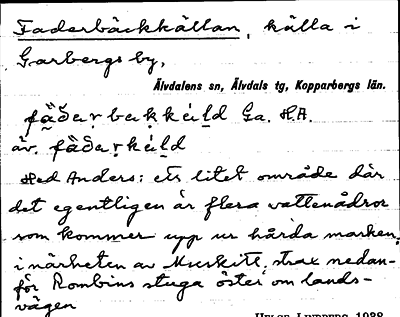 Faderbäckkällan, källa i
Garbergs by,
Älvdalens sn, Älvdals tg, Kopparbergs län.
Ga. H.A.
äv.
Hed Anders: ett litet område där
det egentligen är flera vattenådror
som kommer upp ur hårda marken,
i närheten av Muskitt, strax nedan-
för Rombins stuga öster om lands-
vägen
HELGE LINDBERG 1938